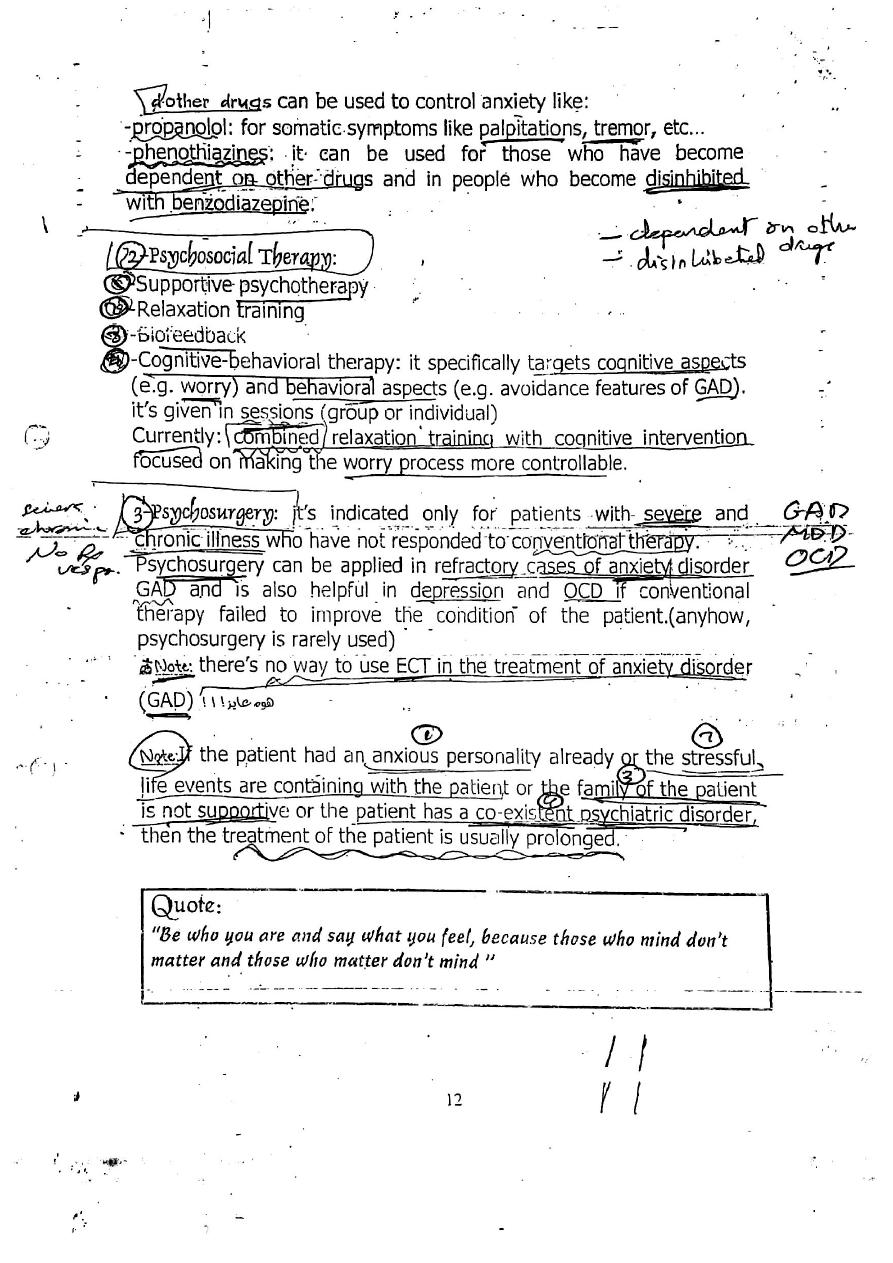 other drugs can be used to control anxiety like:
-propanolol: for somatic symptoms like palpitations, tremor, etc...
-phenothiazines: it can be used for those who have become
dependent on other drugs and in people who become disinhibited
with benzodiazepine.
- dependent on other
drugs
- disinhibeted
2-Psychosocial Therapy:
-Supportive psychotherapy
-Relaxation training
-Biofeedback
-Cognitive-behavioral therapy: it specifically targets cognitive aspects
(e.g. worry) and behavioral aspects (e.g. avoidance features of GAD).
it's given in sessions (group or individual)
Currently: combined relaxation training with cognitive intervention
focused on making the worry process more controllable.
chronic
No
GAD
MDD
OCD
3-Psychosurgery: it's indicated only for patients with severe and
chronic illness who have not responded to conventional therapy.
Psychosurgery can be applied in refractory cases of anxiety disorder
GAD and is also helpful in depression and OCD if conventional
therapy failed to improve the condition of the patient.(anyhow,
psychosurgery is rarely used)
Note: there's no way to use ECT in the treatment of anxiety disorder
(GAD) !!!
1 2
Note:If the patient had an anxious personality already or the stressful
life events are containing with the patient or the family of the patient
3
is not supportive or the patient has a co-existent psychiatric disorder,
4
then the treatment of the patient is usually prolonged.
Quote:
"Be who you are and say what you feel, because those who mind don't
matter and those who matter don't mind "
12